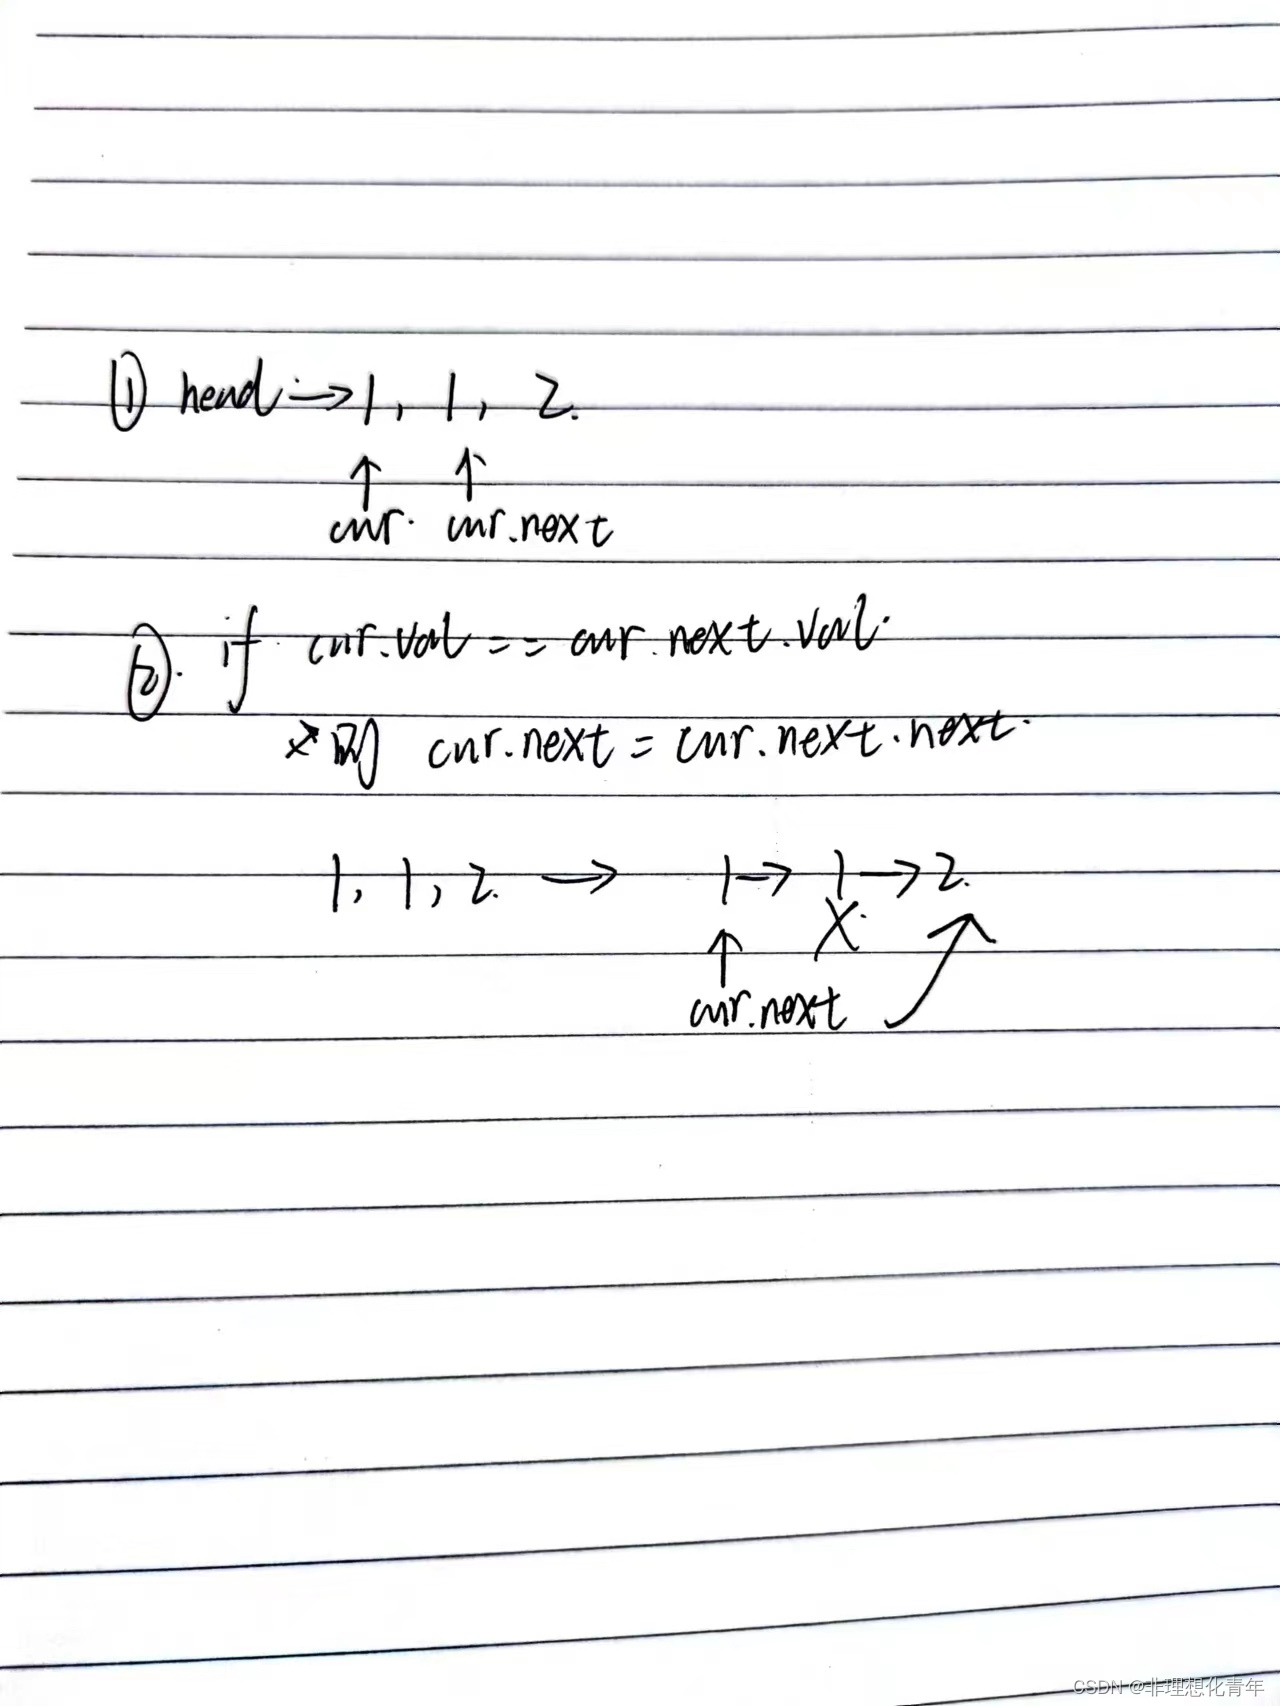 ① head → 1, 1, 2.
↑ ↑
cur. cur.next
②. if cur.val == cur.next.val.
则 cur.next = cur.next.next.
1, 1, 2. → 1 → 1 → 2.
↑ X
cur.next
CSDN @非理想化青年